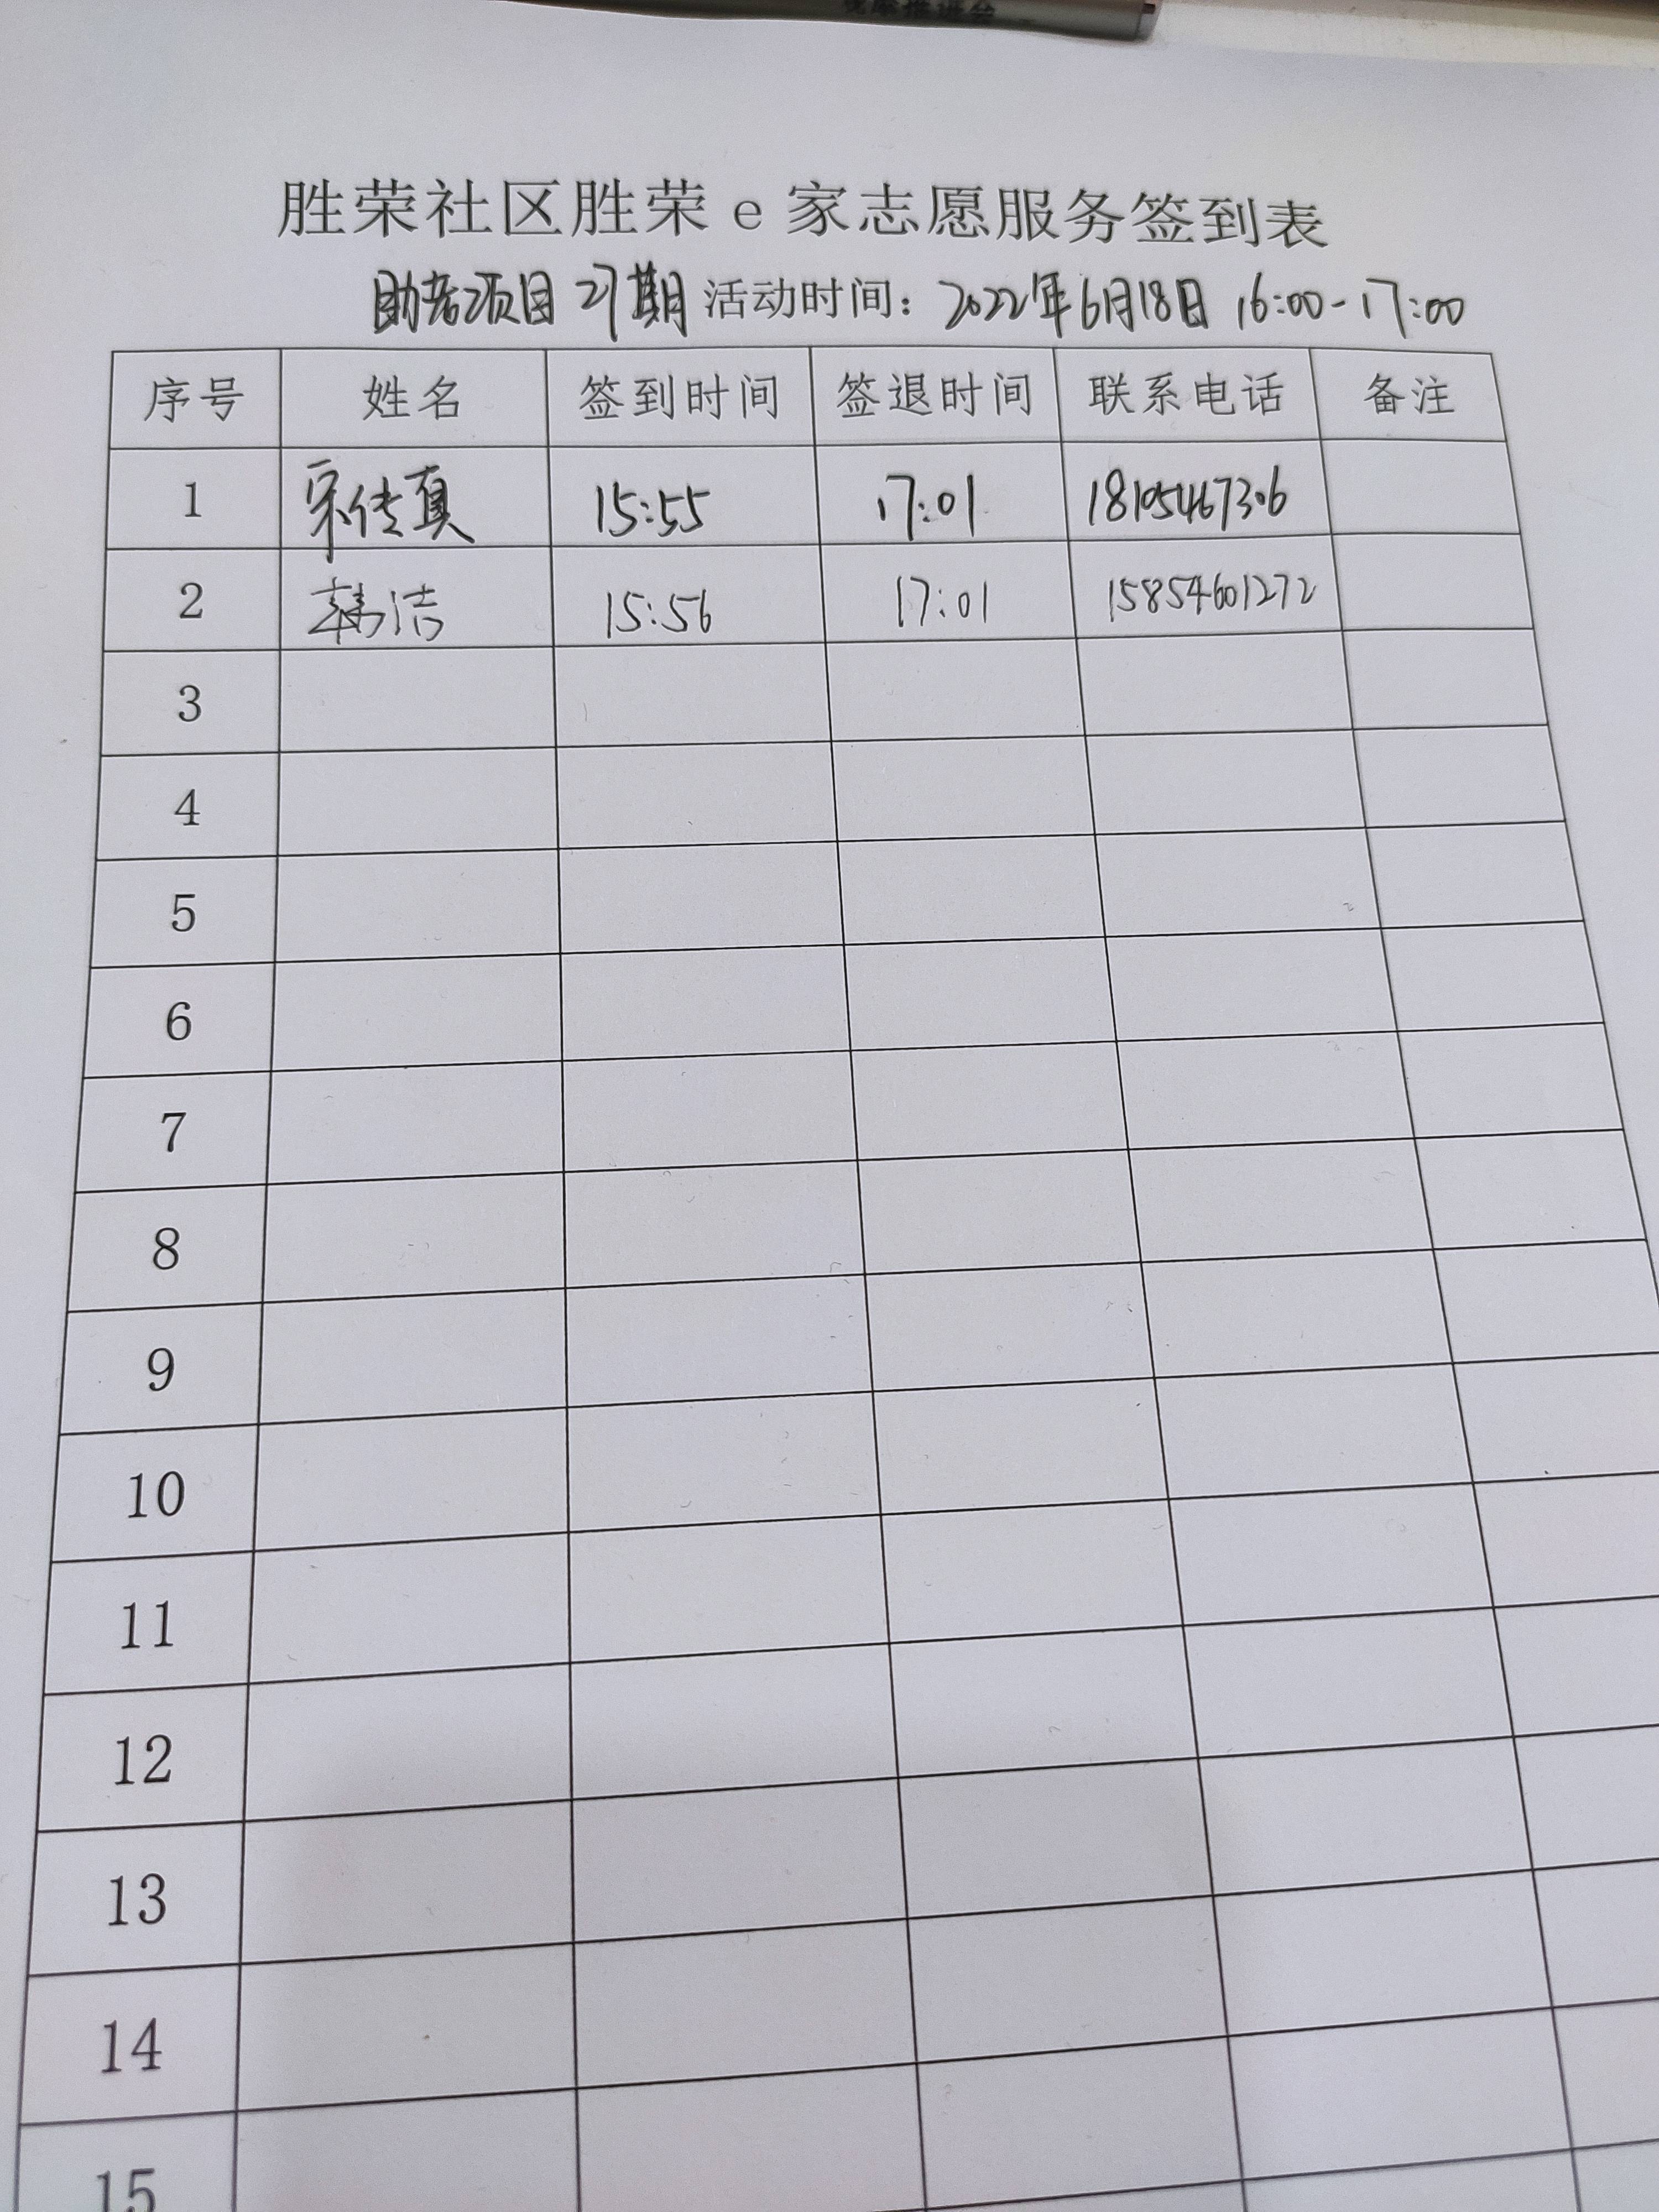 胜荣社区胜荣e家志愿服务签到表
助老项目 27期 活动时间：2022年6月18日 16:00-17:00
序号 姓名 签到时间 签退时间 联系电话 备注
1 宋传真 15:55 17:01 18105467306
2 韩洁 15:56 17:01 15854601272
3
4
5
6
7
8
9
10
11
12
13
14
15